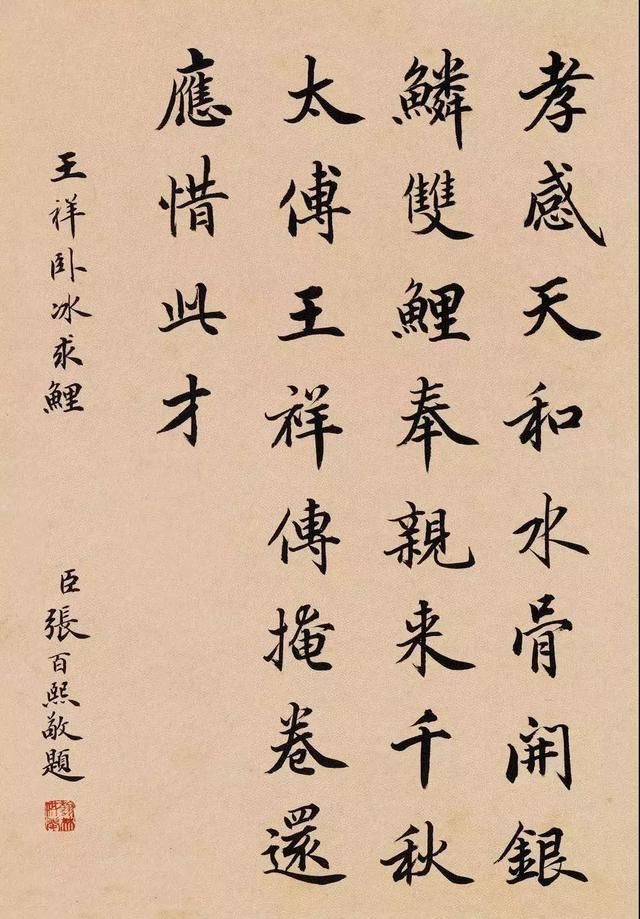 孝感天和水骨開銀
鱗雙鯉奉親来千秋
太傅王祥傳掩卷還
應惜此才
王祥卧冰求鯉
臣張百熙敬題